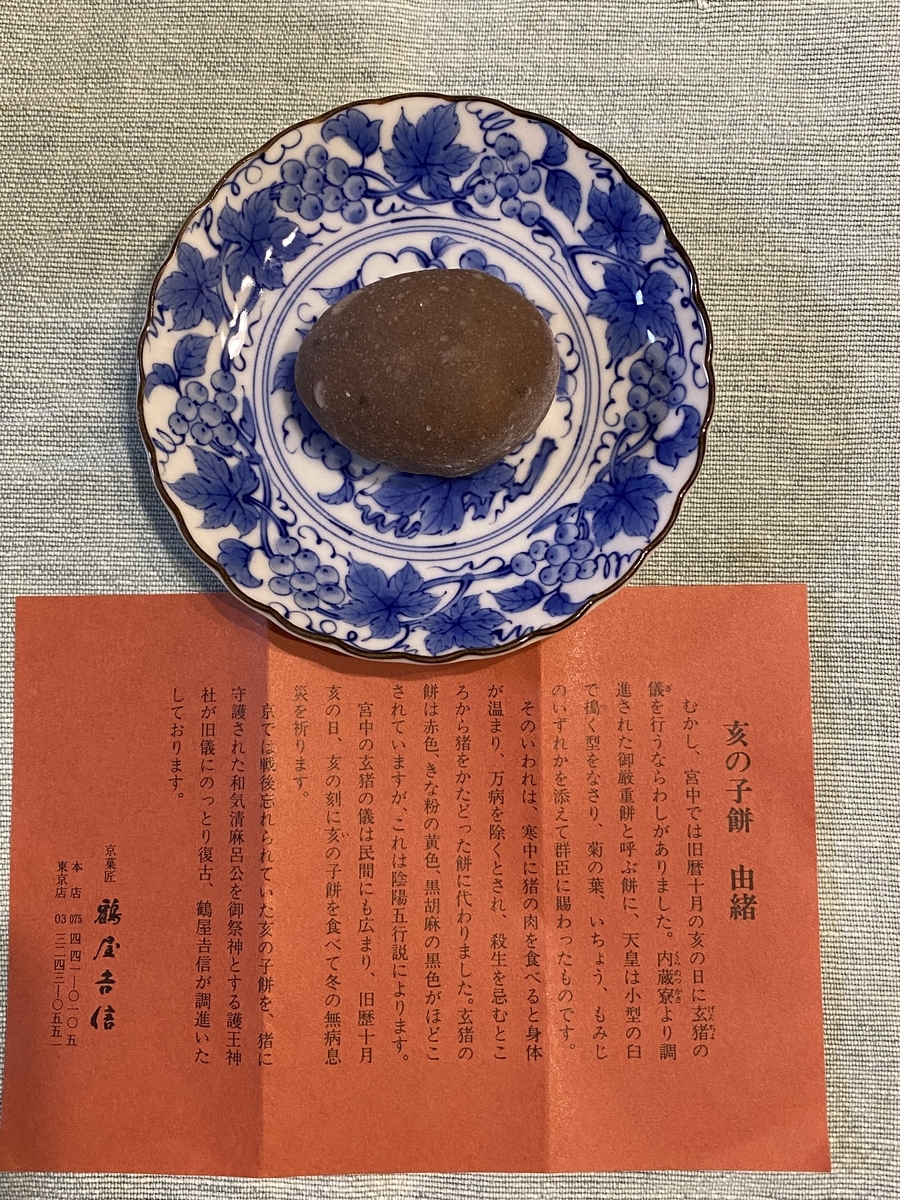 亥の子餅　由緒
むかし、宮中では旧暦十月の亥の日に玄猪の
儀を行うならわしがありました。内蔵寮より調
進された御厳重餅と呼ぶ餅に、天皇は小型の臼
で搗く型をなさり、菊の葉、いちょう、もみじ
のいずれかを添えて群臣に賜わったものです。
そのいわれは、寒中に猪の肉を食べると身体
が温まり、万病を除くとされ、殺生を忌むとこ
ろから猪をかたどった餅に代わりました。玄猪の
餅は赤色、きな粉の黄色、黒胡麻の黒色がほどこ
されていますが、これは陰陽五行説によります。
宮中の玄猪の儀は民間にも広まり、旧歴十月
亥の日、亥の刻に亥の子餅を食べて冬の無病息
災を祈ります。
京では戦後忘れられていた亥の子餅を、猪に
守護された和気清麻呂公を御祭神とする護王神
社が旧儀にのっとり復古、鶴屋𠮷信が調進いた
しております。
京菓匠　鶴屋𠮷信
本　店　075　四四一―〇一〇五
東京店　03　三二四三―〇五五一